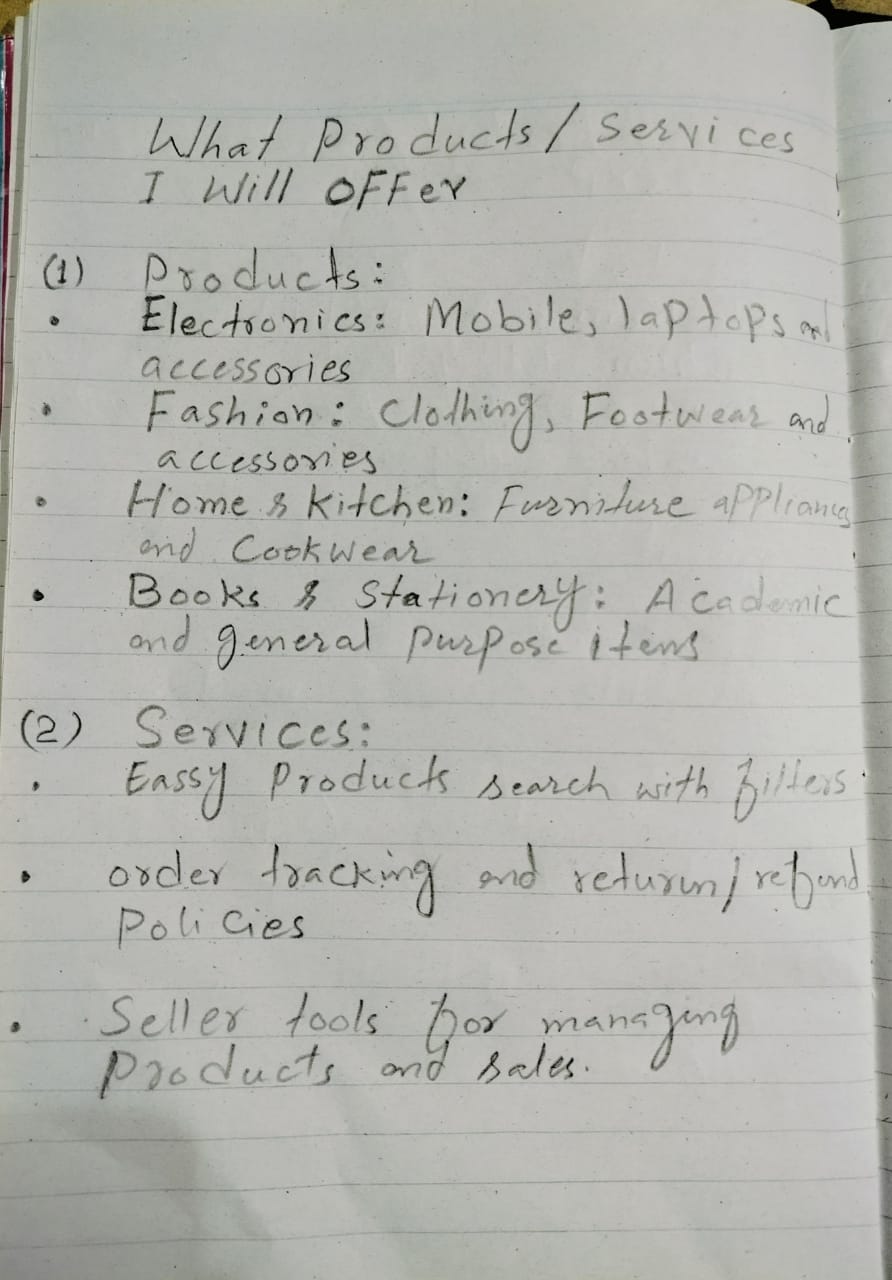 What Products/Services
I Will OFFer
(1) Products:
• Electronics: Mobile, laptops and
accessories
• Fashion: Clothing, Footwear and
accessories
• Home & Kitchen: Furniture appliances
and Cookwear
• Books & Stationery: Academic
and general purpose items
(2) Services:
• Eassy Products search with filters
• order tracking and returun/refund
Policies
• Seller tools for managing
Products and sales.